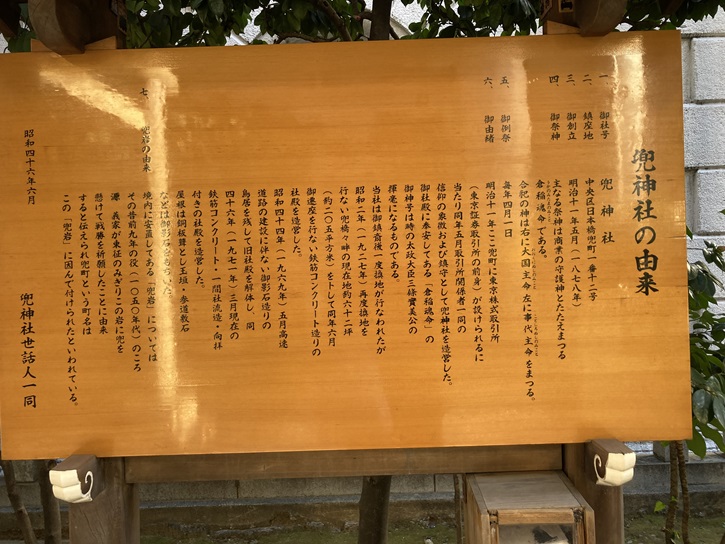 兜神社の由来
一、御社号 兜神社
二、鎮座地 中央区日本橋兜町一番十二号
三、御創立 明治十一年五月(一八七八年)
四、御祭神 主なる祭神は商業の守護神とたたえまつる
倉稲魂命である。
合祀の神は右に大国主命 左に事代主命をまつる。
五、御例祭 毎年四月一日
六、御由緒 明治十一年ここ兜町に東京株式取引所
(東京証券取引所の前身)が設けられるに
当たり同年五月取引所関係者一同の
信仰の象徴および鎮守として兜神社を造営した。
御社殿に奉安してある「倉稲魂命」の
御神号は時の太政大臣三條實美公の
揮毫になるものである。
当社は御鎮座後一度換地が行なわれたが
昭和二年(一九二七年)再度換地を
行ない兜橋々畔の現在地約六十二坪
(約二〇五平方米)を卜して同年六月
御遷座を行ない鉄筋コンクリート造りの
社殿を造営した。
昭和四十四年(一九六九年)五月高速
道路の建設に伴ない御影石造りの
鳥居を残して旧社殿を解体し、同
四十六年(一九七一年)三月現在の
鉄筋コンクリート・一間社流造・向拝
付きの社殿を造営した。
屋根は銅板葺とし玉垣・参道敷石
などは御影石を用いた。
七、兜岩の由来
境内に安置してある「兜岩」については
その昔前九年の役(一〇五〇年代)のころ
源 義家が東征のみぎりこの岩に兜を
懸けて戦勝を祈願したことに由来
すると伝えられ兜町という町名は
この「兜岩」に因んで付けられたといわれている。
昭和四十六年六月
兜神社世話人一同